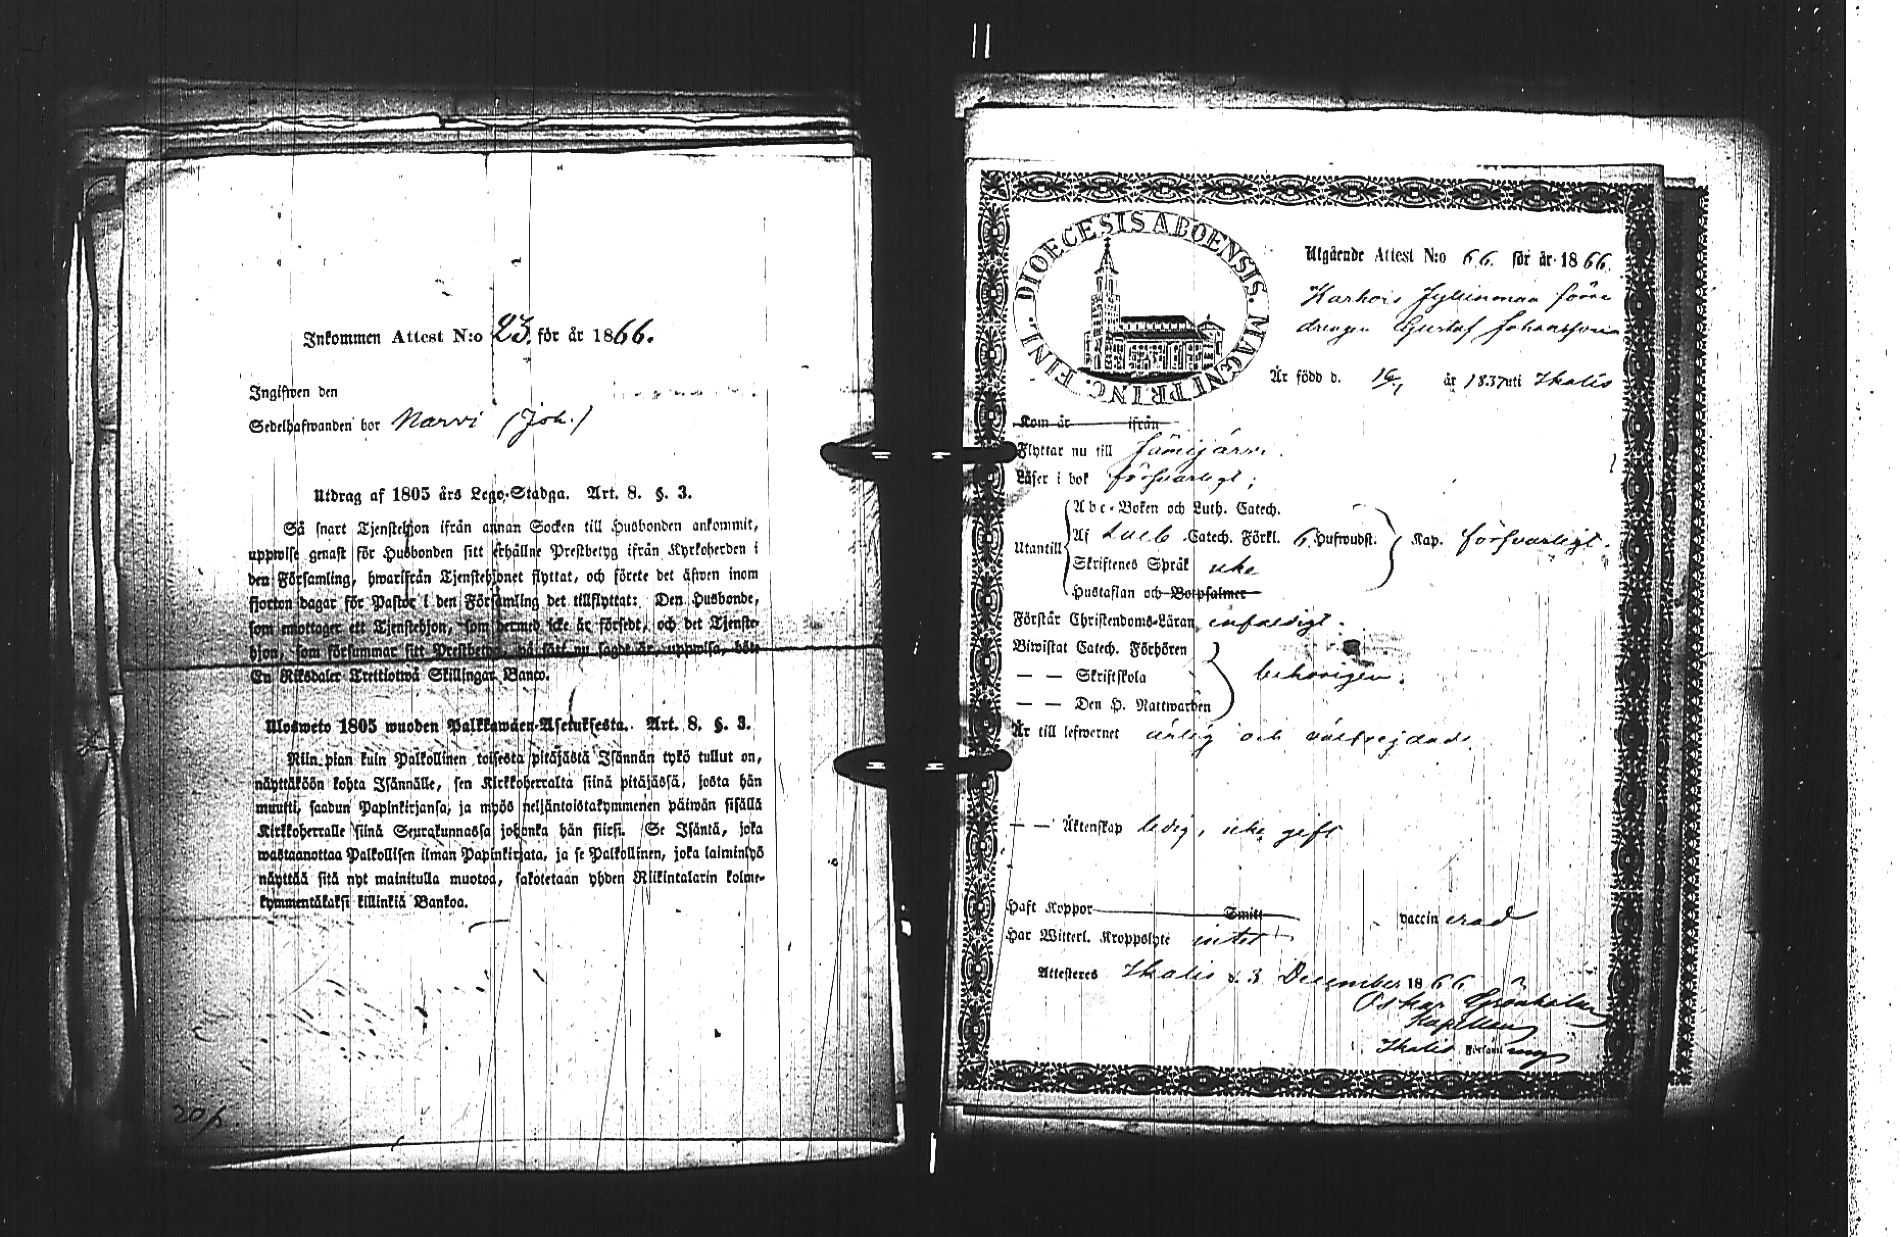 Inkommen Attest N:o 23. för år 1866.
Ingifwen den
Sedelhafwanden bor Narvi (Joh.)
Utdrag af 1805 års Lego-Stadga. Art. 8. §. 3.
Så snart Tjenstehjon ifrån annan Socken till Husbonden ankommit,
uppwise genast för Husbonden sitt erhållne Prestbetyg ifrån Kyrkoherden i
den Församling, hwarifrån Tjenstehjonet flyttat, och förete det äfwen inom
fjorton dagar för Pastor i den Församling det tillflyttat: Den Husbonde,
som emottager ett Tjenstehjon, som dermed icke är försedt, och det Tjenste-
hjon, som försummar sitt Prestbetyg, på sätt nu sagdt är, uppwisa, böte
En Riksdaler Trettiotwå Skillingar Banco.
Ulosweto 1805 wuoden Palkkawäen-Asetuksesta. Art. 8. §. 3.
Niin pian kuin Palkollinen toisesta pitäjästä Isännän tykö tullut on,
näyttäköön kohta Isännälle, sen Kirkkoherralta siinä pitäjässä, josta hän
muutti, saadun Papinkirjansa, ja myös neljäntoistakymmenen päiwän sisällä
Kirkkoherralle siinä Seurakunnassa johonka hän siirsi. Se Isäntä, joka
wastaanottaa Palkollisen ilman Papinkirjata, ja se Palkollinen, joka laiminlyö
näyttää sitä nyt mainitulla muotoa, sakotetaan yhden Riikintalarin kolme-
kymmentäkaksi killinkiä Bankoa.
20/p.
DIOECESIS ABOENSIS. MAGNI PRINC. FINL.
Utgående Attest N:o 66. för år 1866.
drengen Gustaf Johansson
Är född d. 16/1 år 1837 uti Ikalis
Kom år ifrån
Flyttar nu till Jämijärvi.
Läser i bok försvarligt;
Abc-Boken och Luth. Catech.
Utantill Af Catech. Förkl. 6 Hufwudst. Kap. försvarligt.
Skriftenes Språk icke
Hustaflan och Botpsalmer
Förstår Christendoms-Läran enfaldigt.
Biwistat Catech. Förhören
— — Skriftskola behörigen.
— — Den H. Nattwarden
Är till lefwernet ärlig och välfrejdad.
— — Äktenskap ledig, icke gift
Haft Koppor Smitt vaccinerad
Har Witterl. Kroppslyte intet
Attesteres Ikalis d. 3 December 1866
Oskar Grönholm
Kapellan
Ikalis Församling